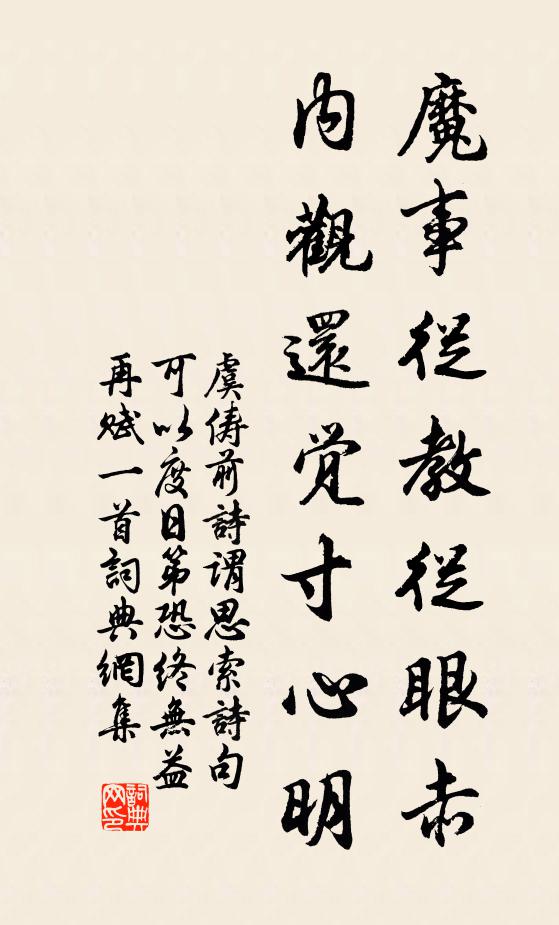 魔事從教從眼赤
內觀還覺寸心明
虞儔前詩謂思索詩句
可以度日第恐終無益
再賦一首詞典網集
詞典网印